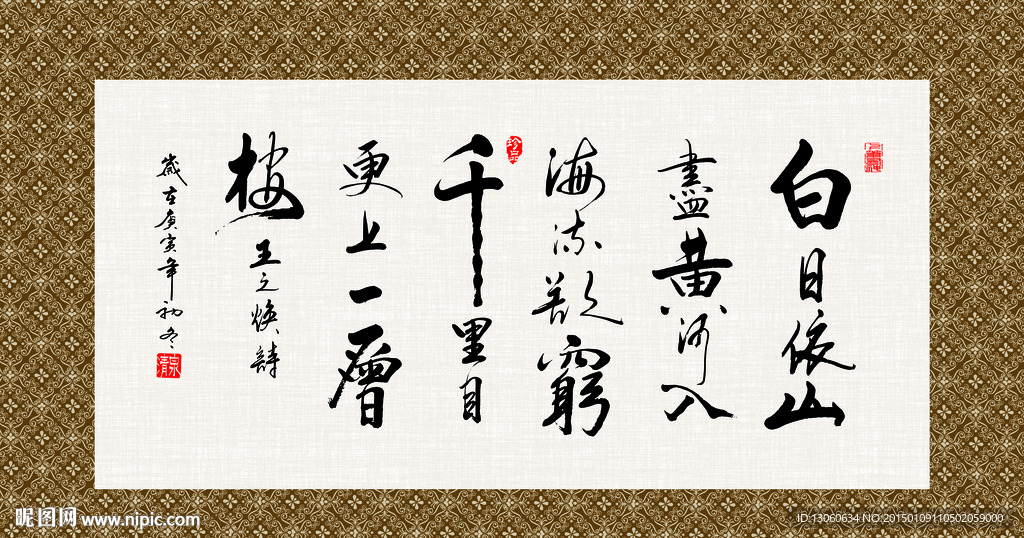 白日依山
盡黄河入
海流欲窮
千里目
更上一層
樓王之煥詩
歲在庚寅年初冬
昵图网 www.nipic.com
ID:13060634 NO:20150109110502059000